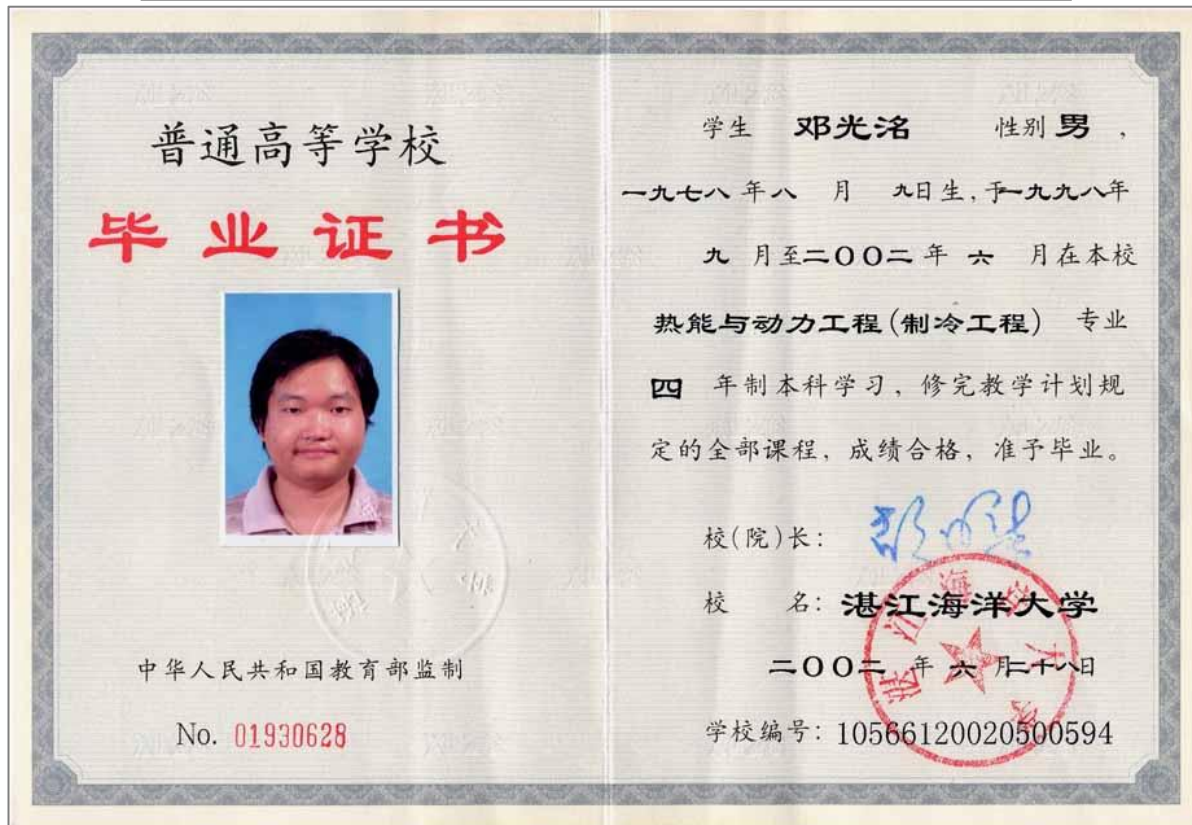 普通高等学校
毕业证书
中华人民共和国教育部监制
No. 01930628
学生 邓光洺 性别 男 ,
一九七八 年 八 月 九日生,于一九九八年
九 月至二〇〇二年 六 月在本校
热能与动力工程(制冷工程) 专业
四 年制本科学习,修完教学计划规
定的全部课程,成绩合格,准予毕业。
校(院)长:
校 名: 湛江海洋大学
二〇〇二 年 六 月二十八日
学校编号: 10566120020500594
湛江海洋大学